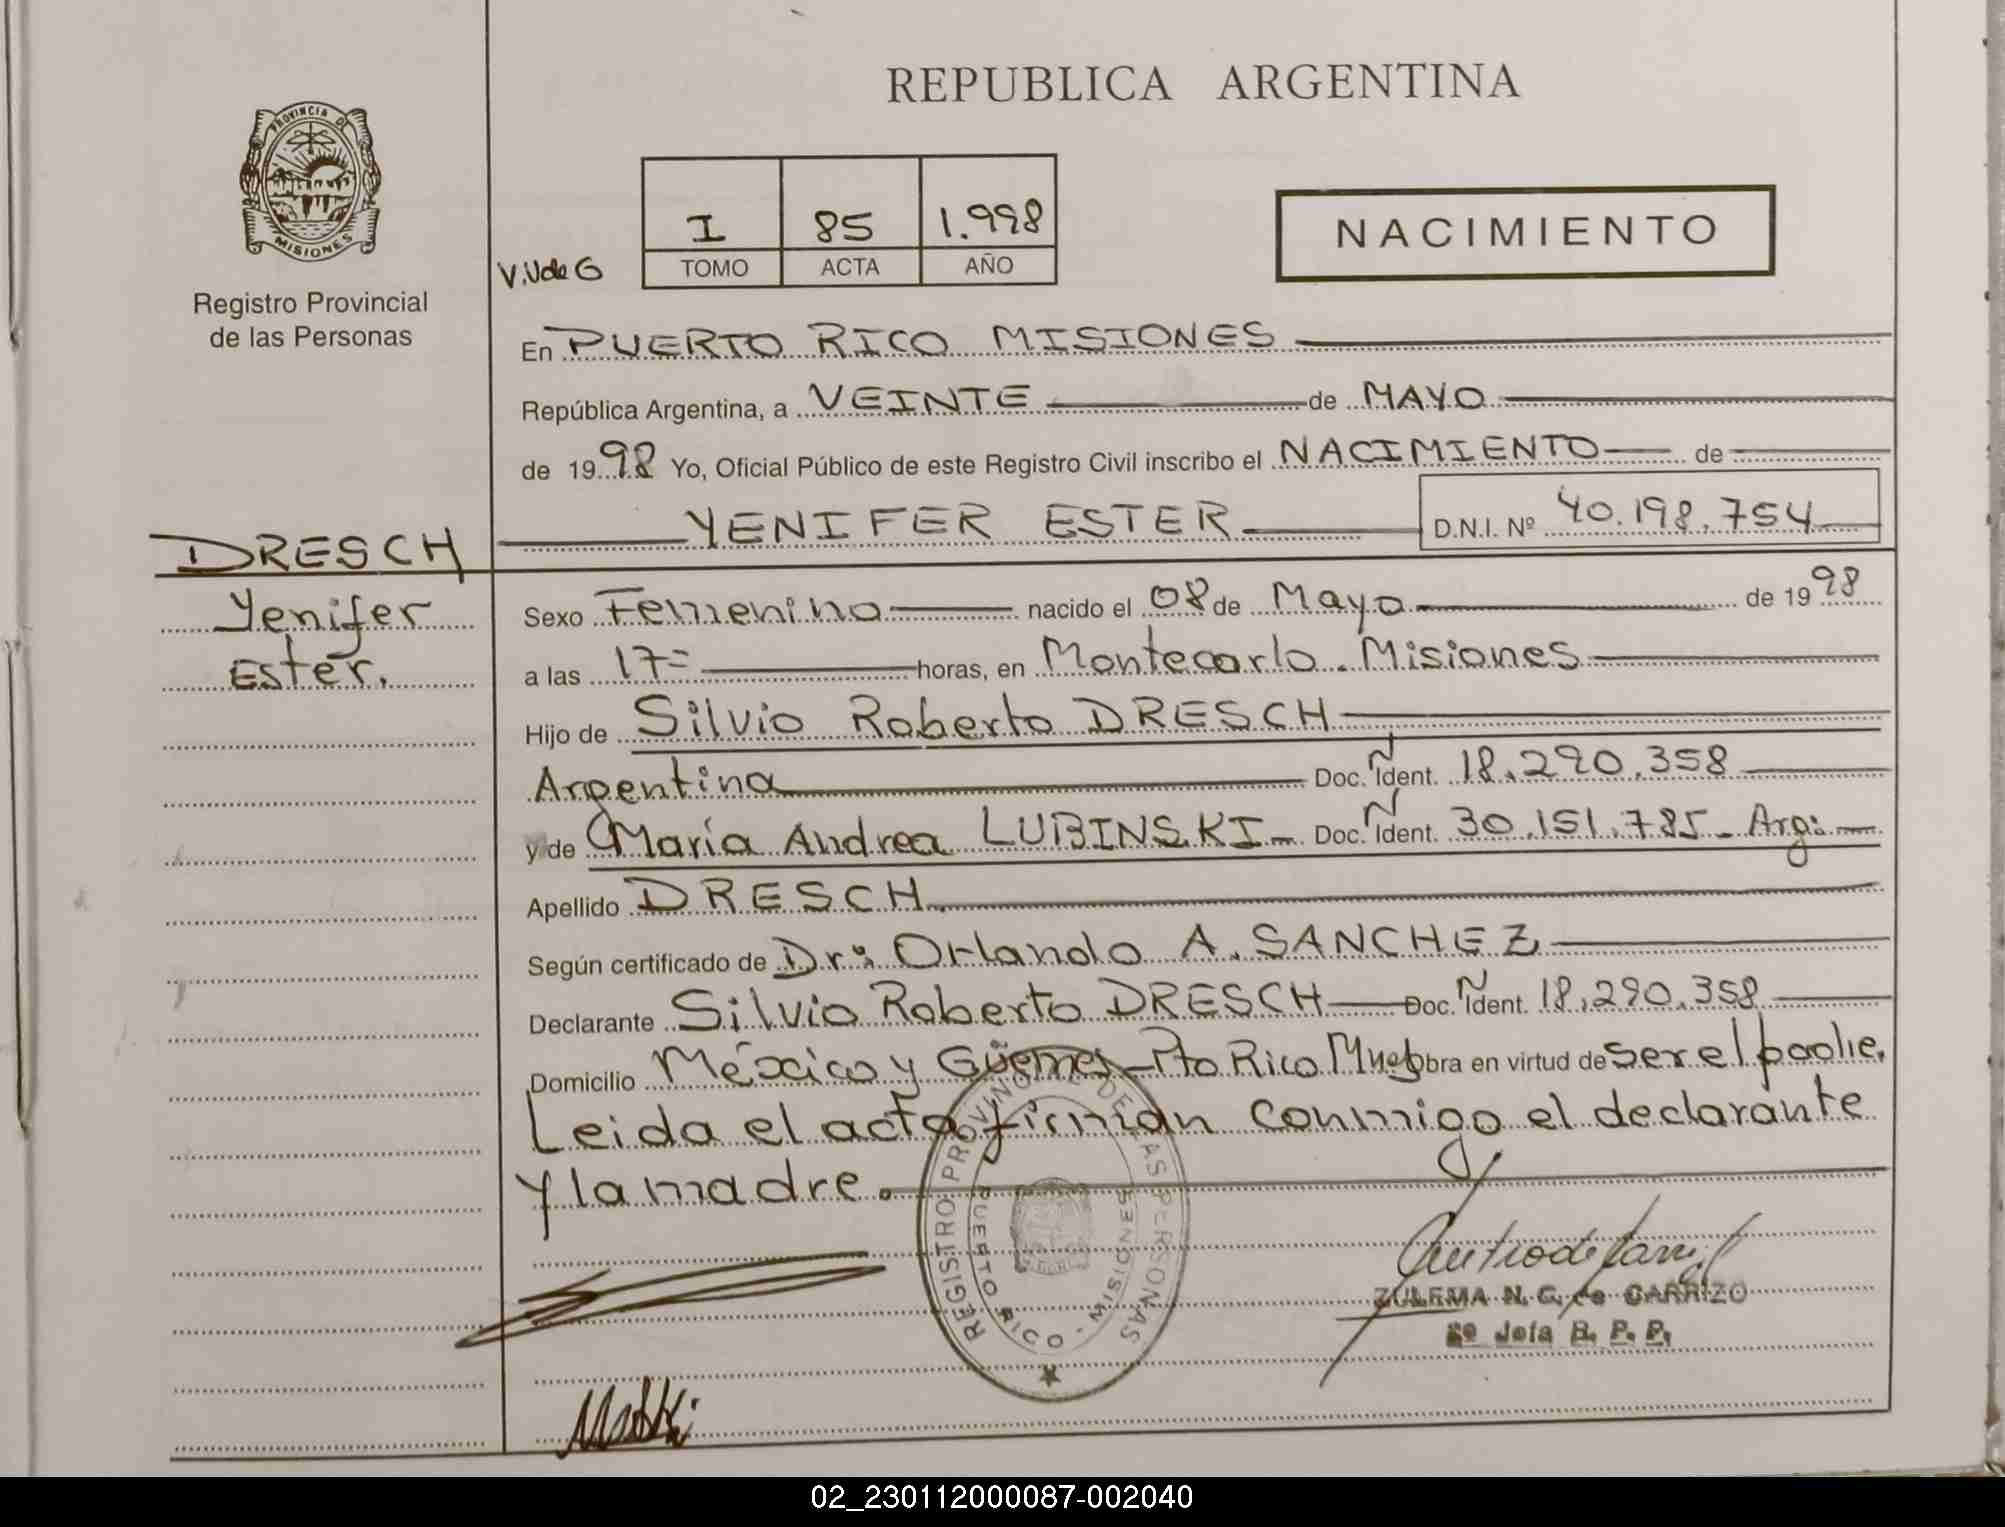 REPUBLICA ARGENTINA
PROVINCIA DE
MISIONES
Registro Provincial
de las Personas
I 85 1.998
TOMO ACTA AÑO
V.U de G
NACIMIENTO
En PUERTO RICO MISIONES
República Argentina, a VEINTE de MAYO
de 1998 Yo, Oficial Público de este Registro Civil inscribo el NACIMIENTO de
YENIFER ESTER D.N.I. Nº 40.198.754
DRESCH
Yenifer
Ester.
Sexo Femenino nacido el 08 de Mayo de 1998
a las 17= horas, en Montecarlo. Misiones
Hijo de Silvio Roberto DRESCH
Argentina Doc. Ident. 18.290.358
y de María Andrea LUBINSKI Doc. Ident. 30.151.785- Arg:
Apellido DRESCH
Según certificado de Dr: Orlando A. SANCHEZ
Declarante Silvio Roberto DRESCH Doc. Ident. 18.290.358
Domicilio México y Güemes Pto Rico Mnes obra en virtud de ser el padre.
Leida el acta firman conmigo el declarante
y la madre.
REGISTRO PROVINCIAL DE LAS PERSONAS
PUERTO RICO - MISIONES
ZULEMA N. G. de CARRIZO
2º Jefa R. P. P.
02_230112000087-002040